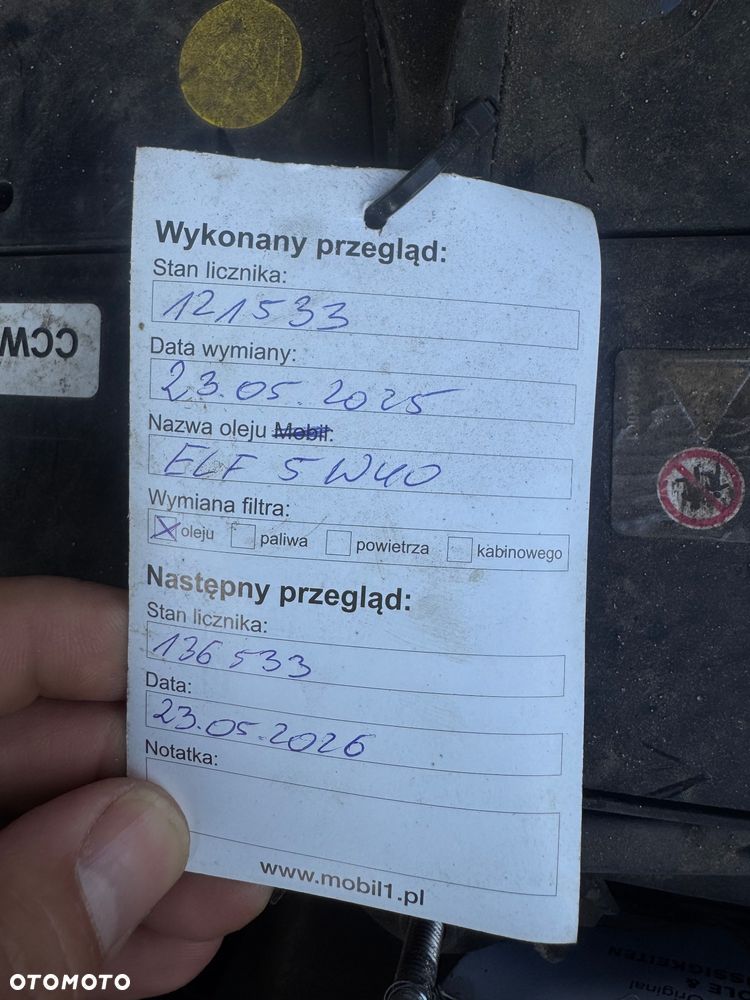 CCW
Wykonany przegląd:
Stan licznika:
121533
Data wymiany:
23.05.2025
Nazwa oleju Mobil:
ELF 5W40
Wymiana filtra:
X oleju paliwa powietrza kabinowego
Następny przegląd:
Stan licznika:
136533
Data:
23.05.2026
Notatka:
www.mobil1.pl
ÖLE &
Original
OTOMOTO